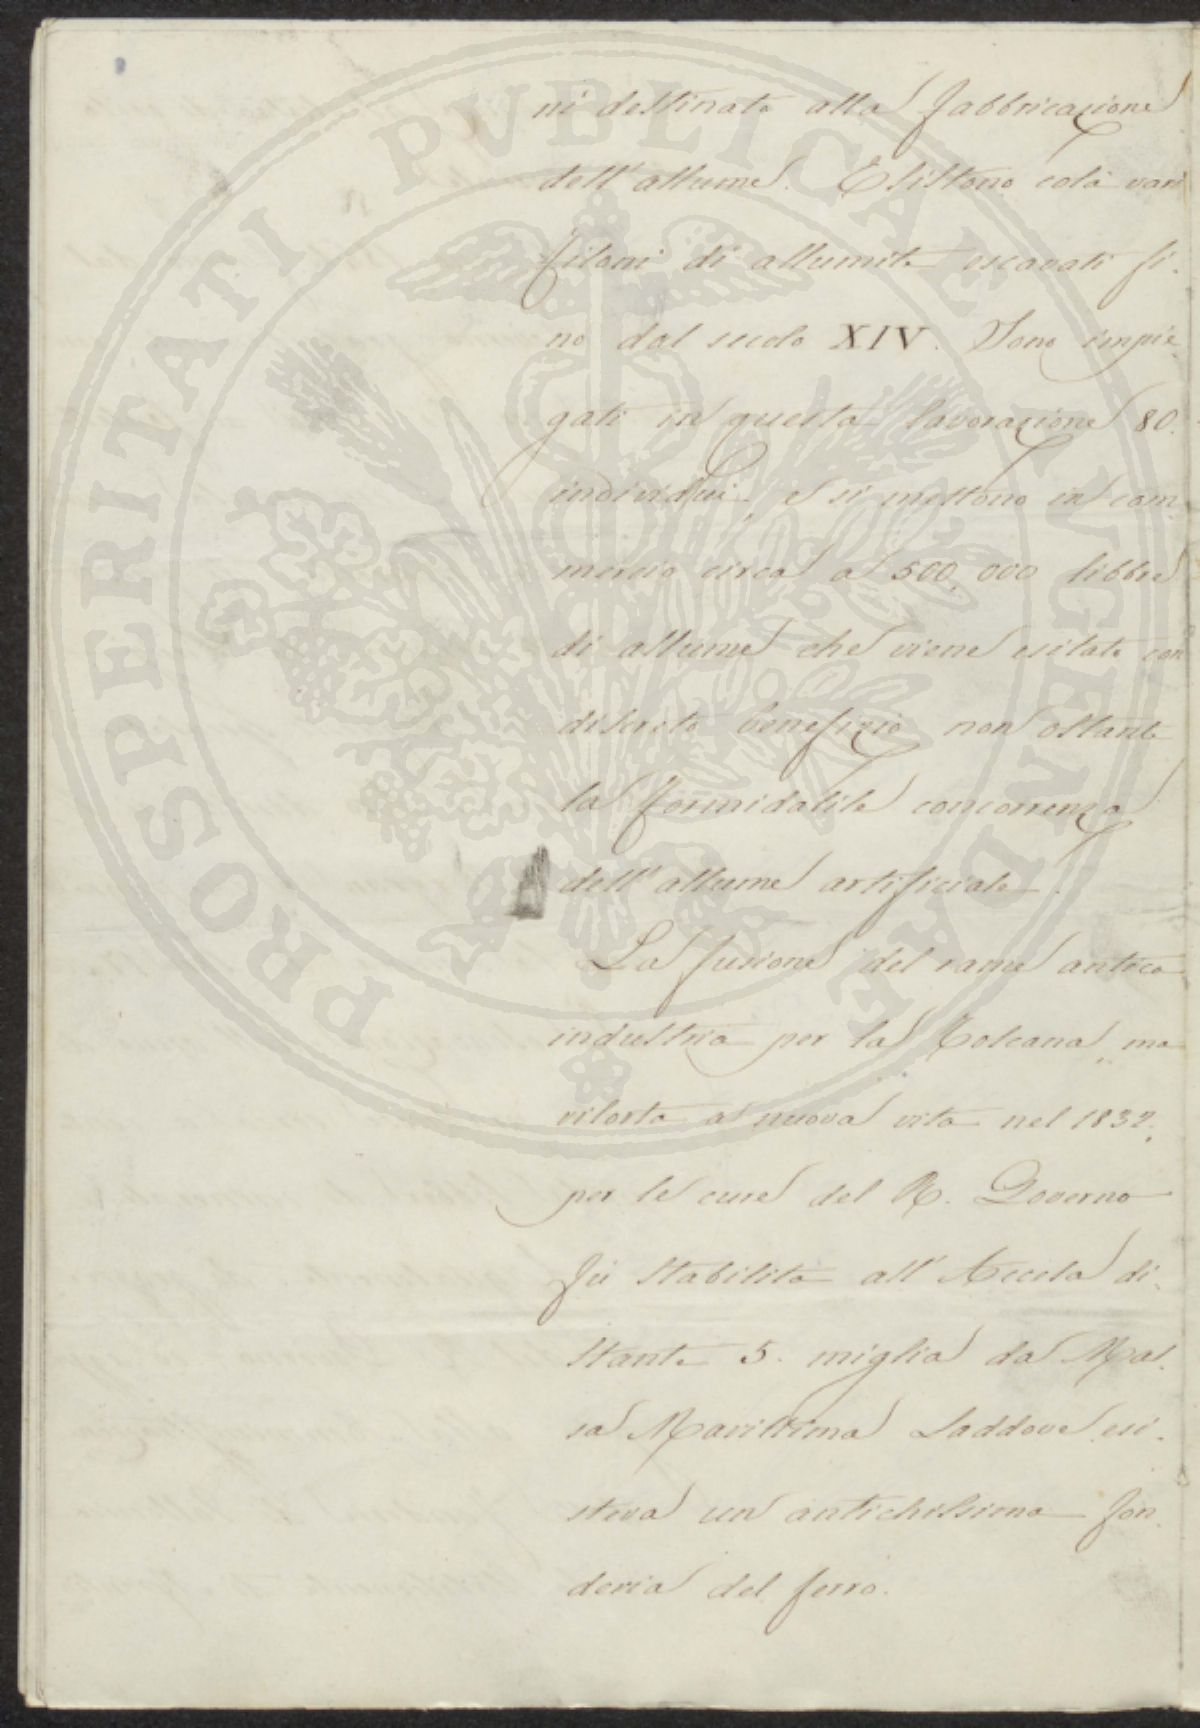 PROSPERITATI PVBLICAE AVGENDAE
ni destinate alla fabbricazione
dell'allume. Esistono colà vari
filoni di allumite escavati fi-
no dal secolo XIV. Sono impie-
gati in questa lavorazione 80.
individui, e si mettono in com-
mercio circa a 500,000 libbre
di allume che viene esitato con
discreto benefizio non ostante
la formidabile concorrenza
dell'allume artificiale.
La fusione del rame antica
industria per la Toscana, ma
risorta a nuova vita nel 1832,
per le cure del R. Governo
fù stabilita all'Accesa di-
stante 5. miglia da Mas-
sa Marittima Laddove esi-
steva un antichissima fon-
deria del ferro.